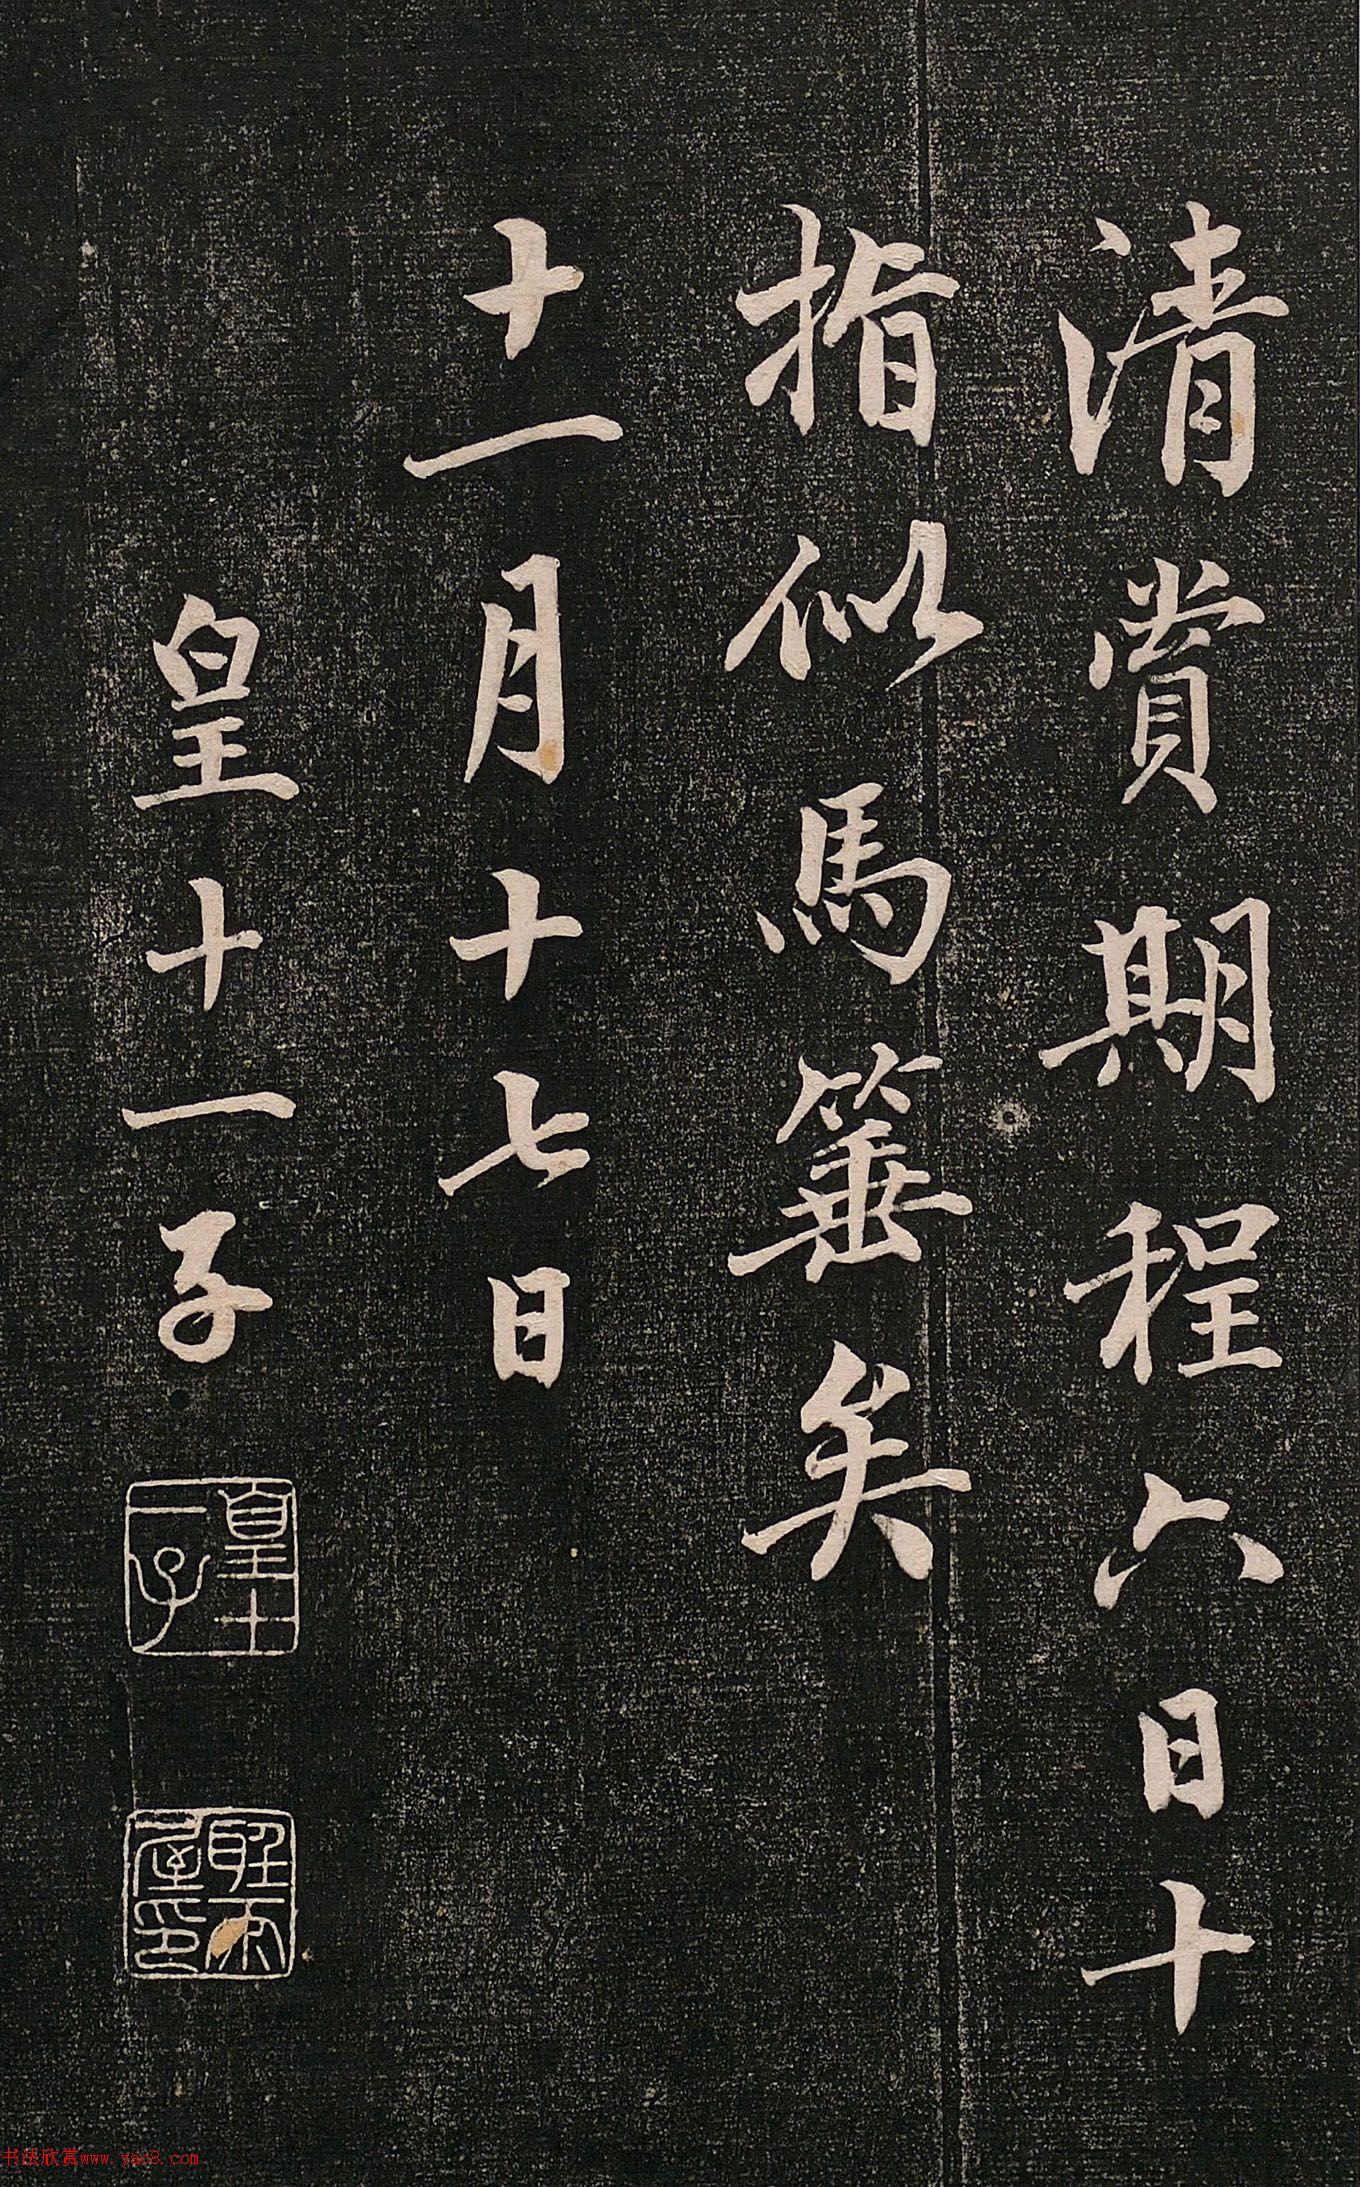 清賞期程六日十
指似馬箠矣
十一月十七日
皇十一子
皇十一子
詒晉屋印
书法欣赏www.yac8.com